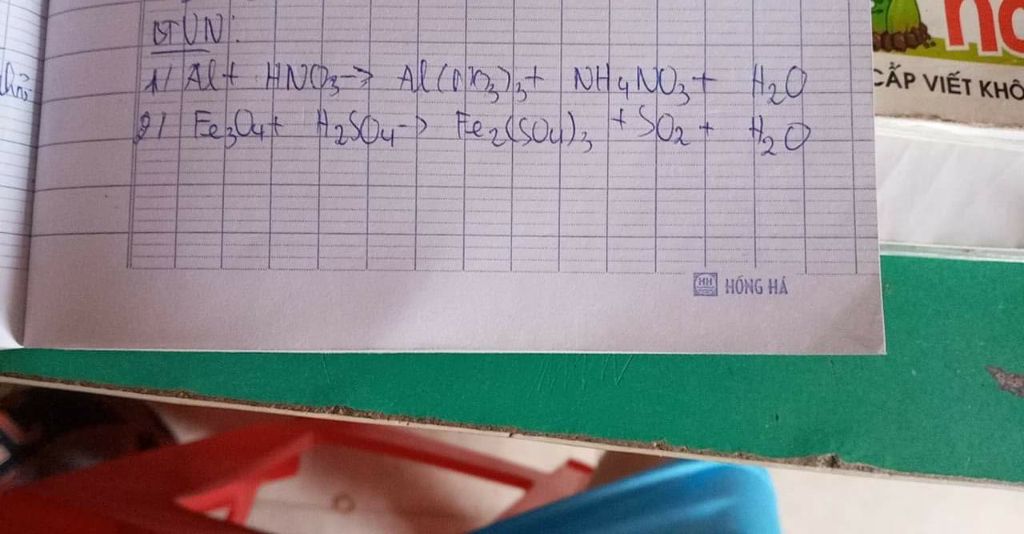 BTVN:
1/ Al + HNO3 → Al(NO3)3 + NH4NO3 + H2O
2/ Fe3O4 + H2SO4 → Fe2(SO4)3 + SO2 + H2O
HH HỒNG HÀ
CẤP VIẾT KHÔ